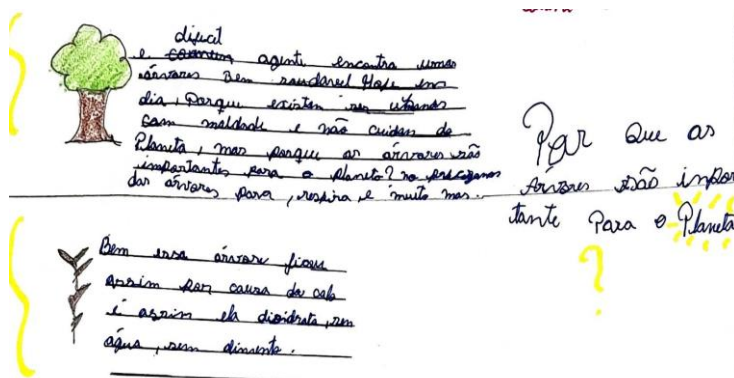 dificil
e agente encontra umas
árvores Bem saudavel Hoje em
dia, Porque existem
com maldade e não cuidam do
Planeta, mas porque as árvores são
importantes para o planeta? no precizamos
das árvores para, respira, e muito mas.
Por que as
Árvores são impor
tante Para o Planeta
?
Bem essa árvore ficou
assim por causa da
é assim ela, sem
água, sem